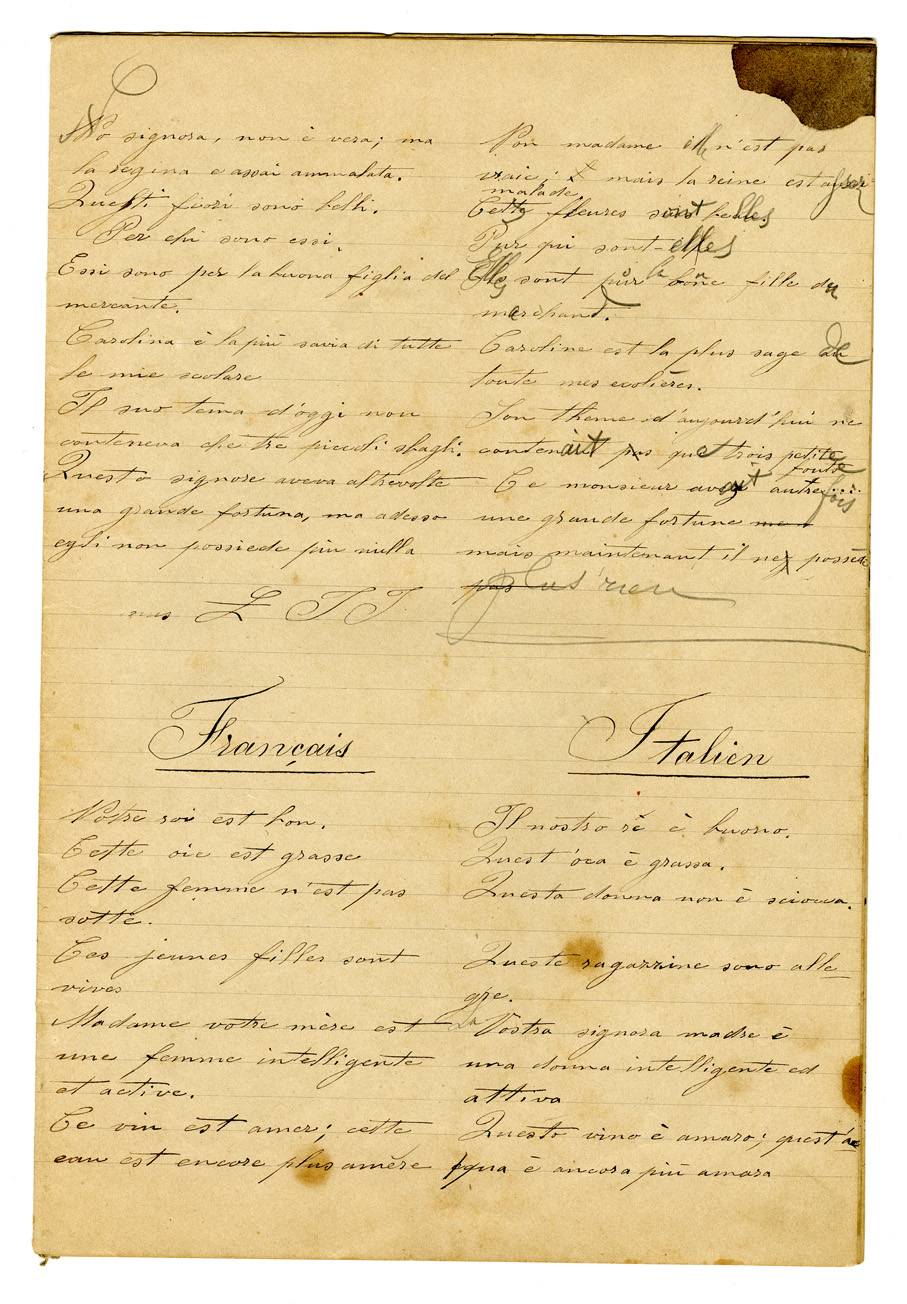 No signora, non è vera; ma
la regina e assai ammalata.
Questi fiori sono belli.
Per chi sono essi.
Essi sono per la buona figlia del
mercante.
Carolina è la più savia di tutte
le mie scolare
Il suo tema d'oggi non
conteneva che tre piccoli sbagli.
Questo signore aveva altrevolte
una grande fortuna, ma adesso
egli non possiede più nulla
Non madame n'est pas
vraie; mais la reine est assez
malade.
Cette fleures sont belles
Pur qui sont-elles
Elles sont pur la bonne fille du
marchand.
Caroline est la plus sage de
toute mes ecolières.
Son theme d'aujourd'hui ne
contenait pas que trois petite
faute
Ce monsieur avait autre...
fois
une grande fortune
mais maintenant il ne possède
pas plus rien
Français
Votre roi est bon.
Cette oie est grasse
Cette femme n'est pas
sotte.
Ces jeunes filles sont
vives
Madame votre mère est
une femme intelligente
et active.
Ce vin est amer; cette
eau est encore plus amère
Italien
Il nostro rè è buono.
Quest'oca è grassa.
Questa donna non è sciocca.
Queste ragazzine sono alle
gre.
La Vostra signora madre è
una donna intelligente ed
attiva
Questo vino è amaro; quest'ac
qua è ancora più amara